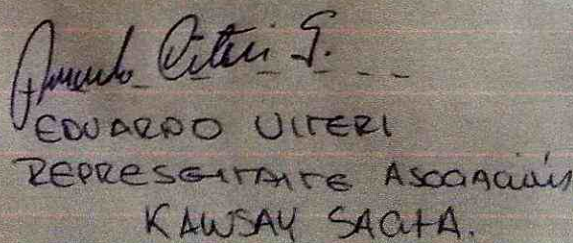 Viteri G.
EDUARDO VITERI
REPRESENTANTE ASOCIACIÓN
KAWSAY SACHA.